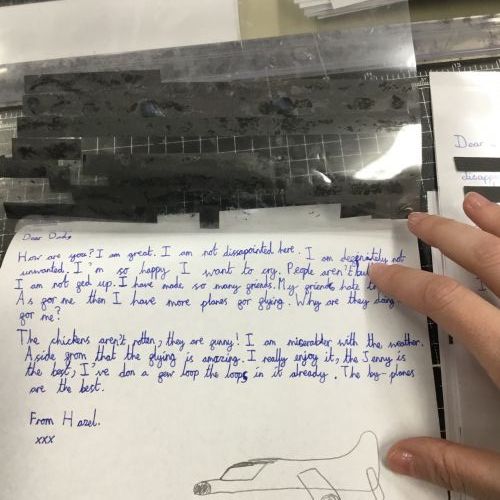 Dear
disapp
Dear Dady
How are you? I am great. I am not dissapointed here. I am deginately not
unwanted. I'm so happy I want to cry. People aren't
I am not ged up. I have made so many griends. My griends hate
As gor me then I have more planes gor glying. Why are they
gor me?
The chickens aren't rotten, they are gunny! I am miserabler with the weather.
Aside grom that the glying is amazing. I really enjoy it, the Jenny is
the best, I've don a gew loop the loops in it already. The by-planes
are the best.
From Hazel.
xxx